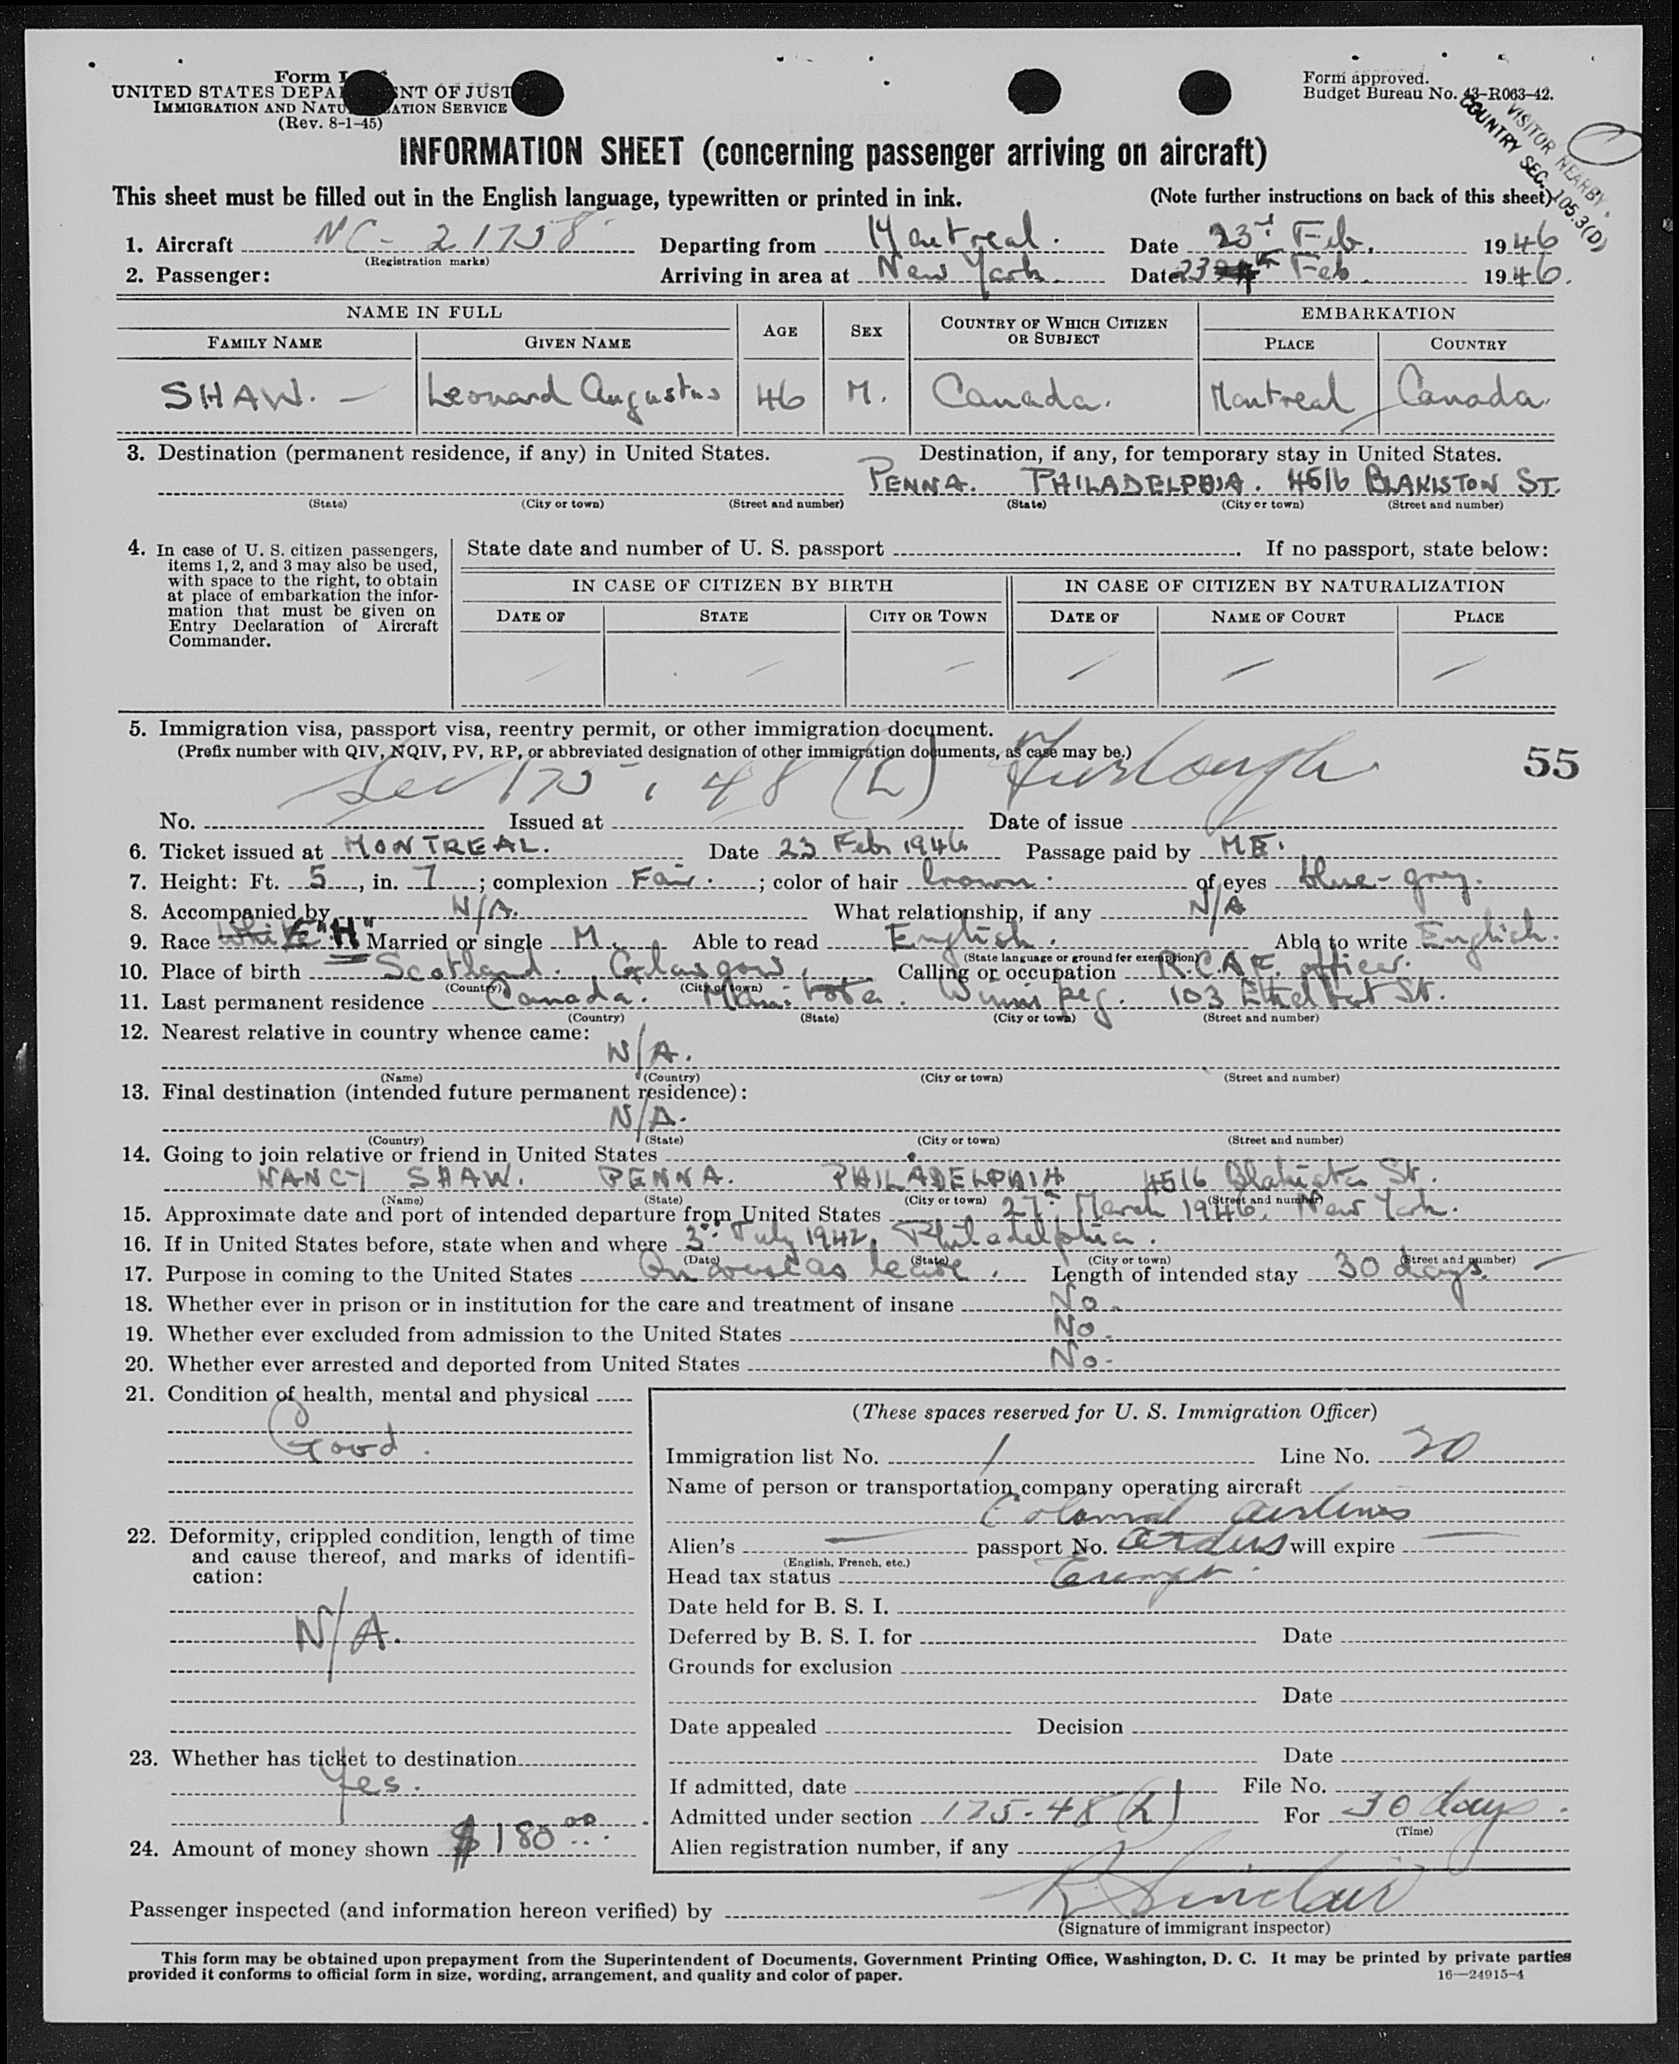 Form I
UNITED STATES DEPA NT OF JUST
IMMIGRATION AND NATU ATION SERVICE
(Rev. 8-1-45)
Form approved.
Budget Bureau No. 43-R063-42.
VISITOR NEARBY
COUNTRY SEC. 105.3(D)
INFORMATION SHEET (concerning passenger arriving on aircraft)
This sheet must be filled out in the English language, typewritten or printed in ink. (Note further instructions on back of this sheet)
1. Aircraft NC- 21758 Departing from Montreal. Date 23rd Feb. 1946
(Registration marks)
2. Passenger: Arriving in area at New York. Date 23 Feb. 1946.
NAME IN FULL AGE SEX COUNTRY OF WHICH CITIZEN OR SUBJECT EMBARKATION
FAMILY NAME GIVEN NAME PLACE COUNTRY
SHAW. Leonard Augustus 46 M. Canada. Montreal Canada.
3. Destination (permanent residence, if any) in United States. Destination, if any, for temporary stay in United States.
PENNA. PHILADELPHIA. 4516 BLAKISTON ST.
(State) (City or town) (Street and number) (State) (City or town) (Street and number)
4. In case of U. S. citizen passengers, items 1, 2, and 3 may also be used, with space to the right, to obtain at place of embarkation the information that must be given on Entry Declaration of Aircraft Commander.
State date and number of U. S. passport . If no passport, state below:
IN CASE OF CITIZEN BY BIRTH IN CASE OF CITIZEN BY NATURALIZATION
DATE OF STATE CITY OR TOWN DATE OF NAME OF COURT PLACE
5. Immigration visa, passport visa, reentry permit, or other immigration document.
(Prefix number with QIV, NQIV, PV, RP, or abbreviated designation of other immigration documents, as case may be.)
55
Sec 175.48 (L) Furlough
No. Issued at Date of issue
6. Ticket issued at MONTREAL. Date 23 Feb 1946 Passage paid by ME.
7. Height: Ft. 5, in. 7; complexion Fair.; color of hair brown. of eyes blue-grey.
8. Accompanied by N/A. What relationship, if any N/A
9. Race White "H" Married or single M. Able to read English. Able to write English.
(State language or ground for exemption)
10. Place of birth Scotland. Glasgow. Calling or occupation R.C.A.F. officer.
(Country) (City or town)
11. Last permanent residence Canada. Manitoba. Winnipeg. 103 Ethelbert St.
(Country) (State) (City or town) (Street and number)
12. Nearest relative in country whence came:
N/A.
(Name) (Country) (City or town) (Street and number)
13. Final destination (intended future permanent residence):
N/A.
(Country) (State) (City or town) (Street and number)
14. Going to join relative or friend in United States
NANCY SHAW. PENNA. PHILADELPHIA 4516 Blakiston St.
(Name) (State) (City or town) (Street and number)
15. Approximate date and port of intended departure from United States 27th March 1946, New York.
16. If in United States before, state when and where 3rd July 1942, Philadelphia.
(Date) (State) (City or town) (Street and number)
17. Purpose in coming to the United States On overseas leave. Length of intended stay 30 days.
18. Whether ever in prison or in institution for the care and treatment of insane No.
19. Whether ever excluded from admission to the United States No.
20. Whether ever arrested and deported from United States No.
21. Condition of health, mental and physical
Good.
22. Deformity, crippled condition, length of time and cause thereof, and marks of identification:
N/A.
23. Whether has ticket to destination
Yes.
24. Amount of money shown $180.00
(These spaces reserved for U. S. Immigration Officer)
Immigration list No. 1 Line No. 20
Name of person or transportation company operating aircraft
Colonial Airlines
Alien's passport No. orders will expire
(English, French, etc.)
Head tax status Exempt.
Date held for B. S. I.
Deferred by B. S. I. for Date
Grounds for exclusion
Date
Date appealed Decision
Date
If admitted, date File No.
Admitted under section 175.48 (L) For 30 days.
(Time)
Alien registration number, if any
Passenger inspected (and information hereon verified) by R Sinclair
(Signature of immigrant inspector)
This form may be obtained upon prepayment from the Superintendent of Documents, Government Printing Office, Washington, D. C. It may be printed by private parties
provided it conforms to official form in size, wording, arrangement, and quality and color of paper. 16—24915-4